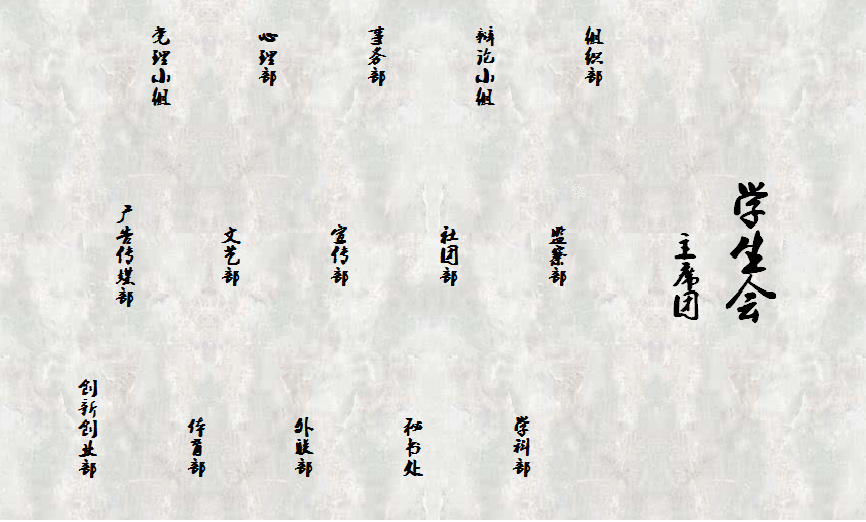 学生会
主席团
组织部
监察部
学科部
辩论小组
社团部
秘书处
事务部
宣传部
外联部
心理部
文艺部
体育部
党理小组
广告传媒部
创新创业部